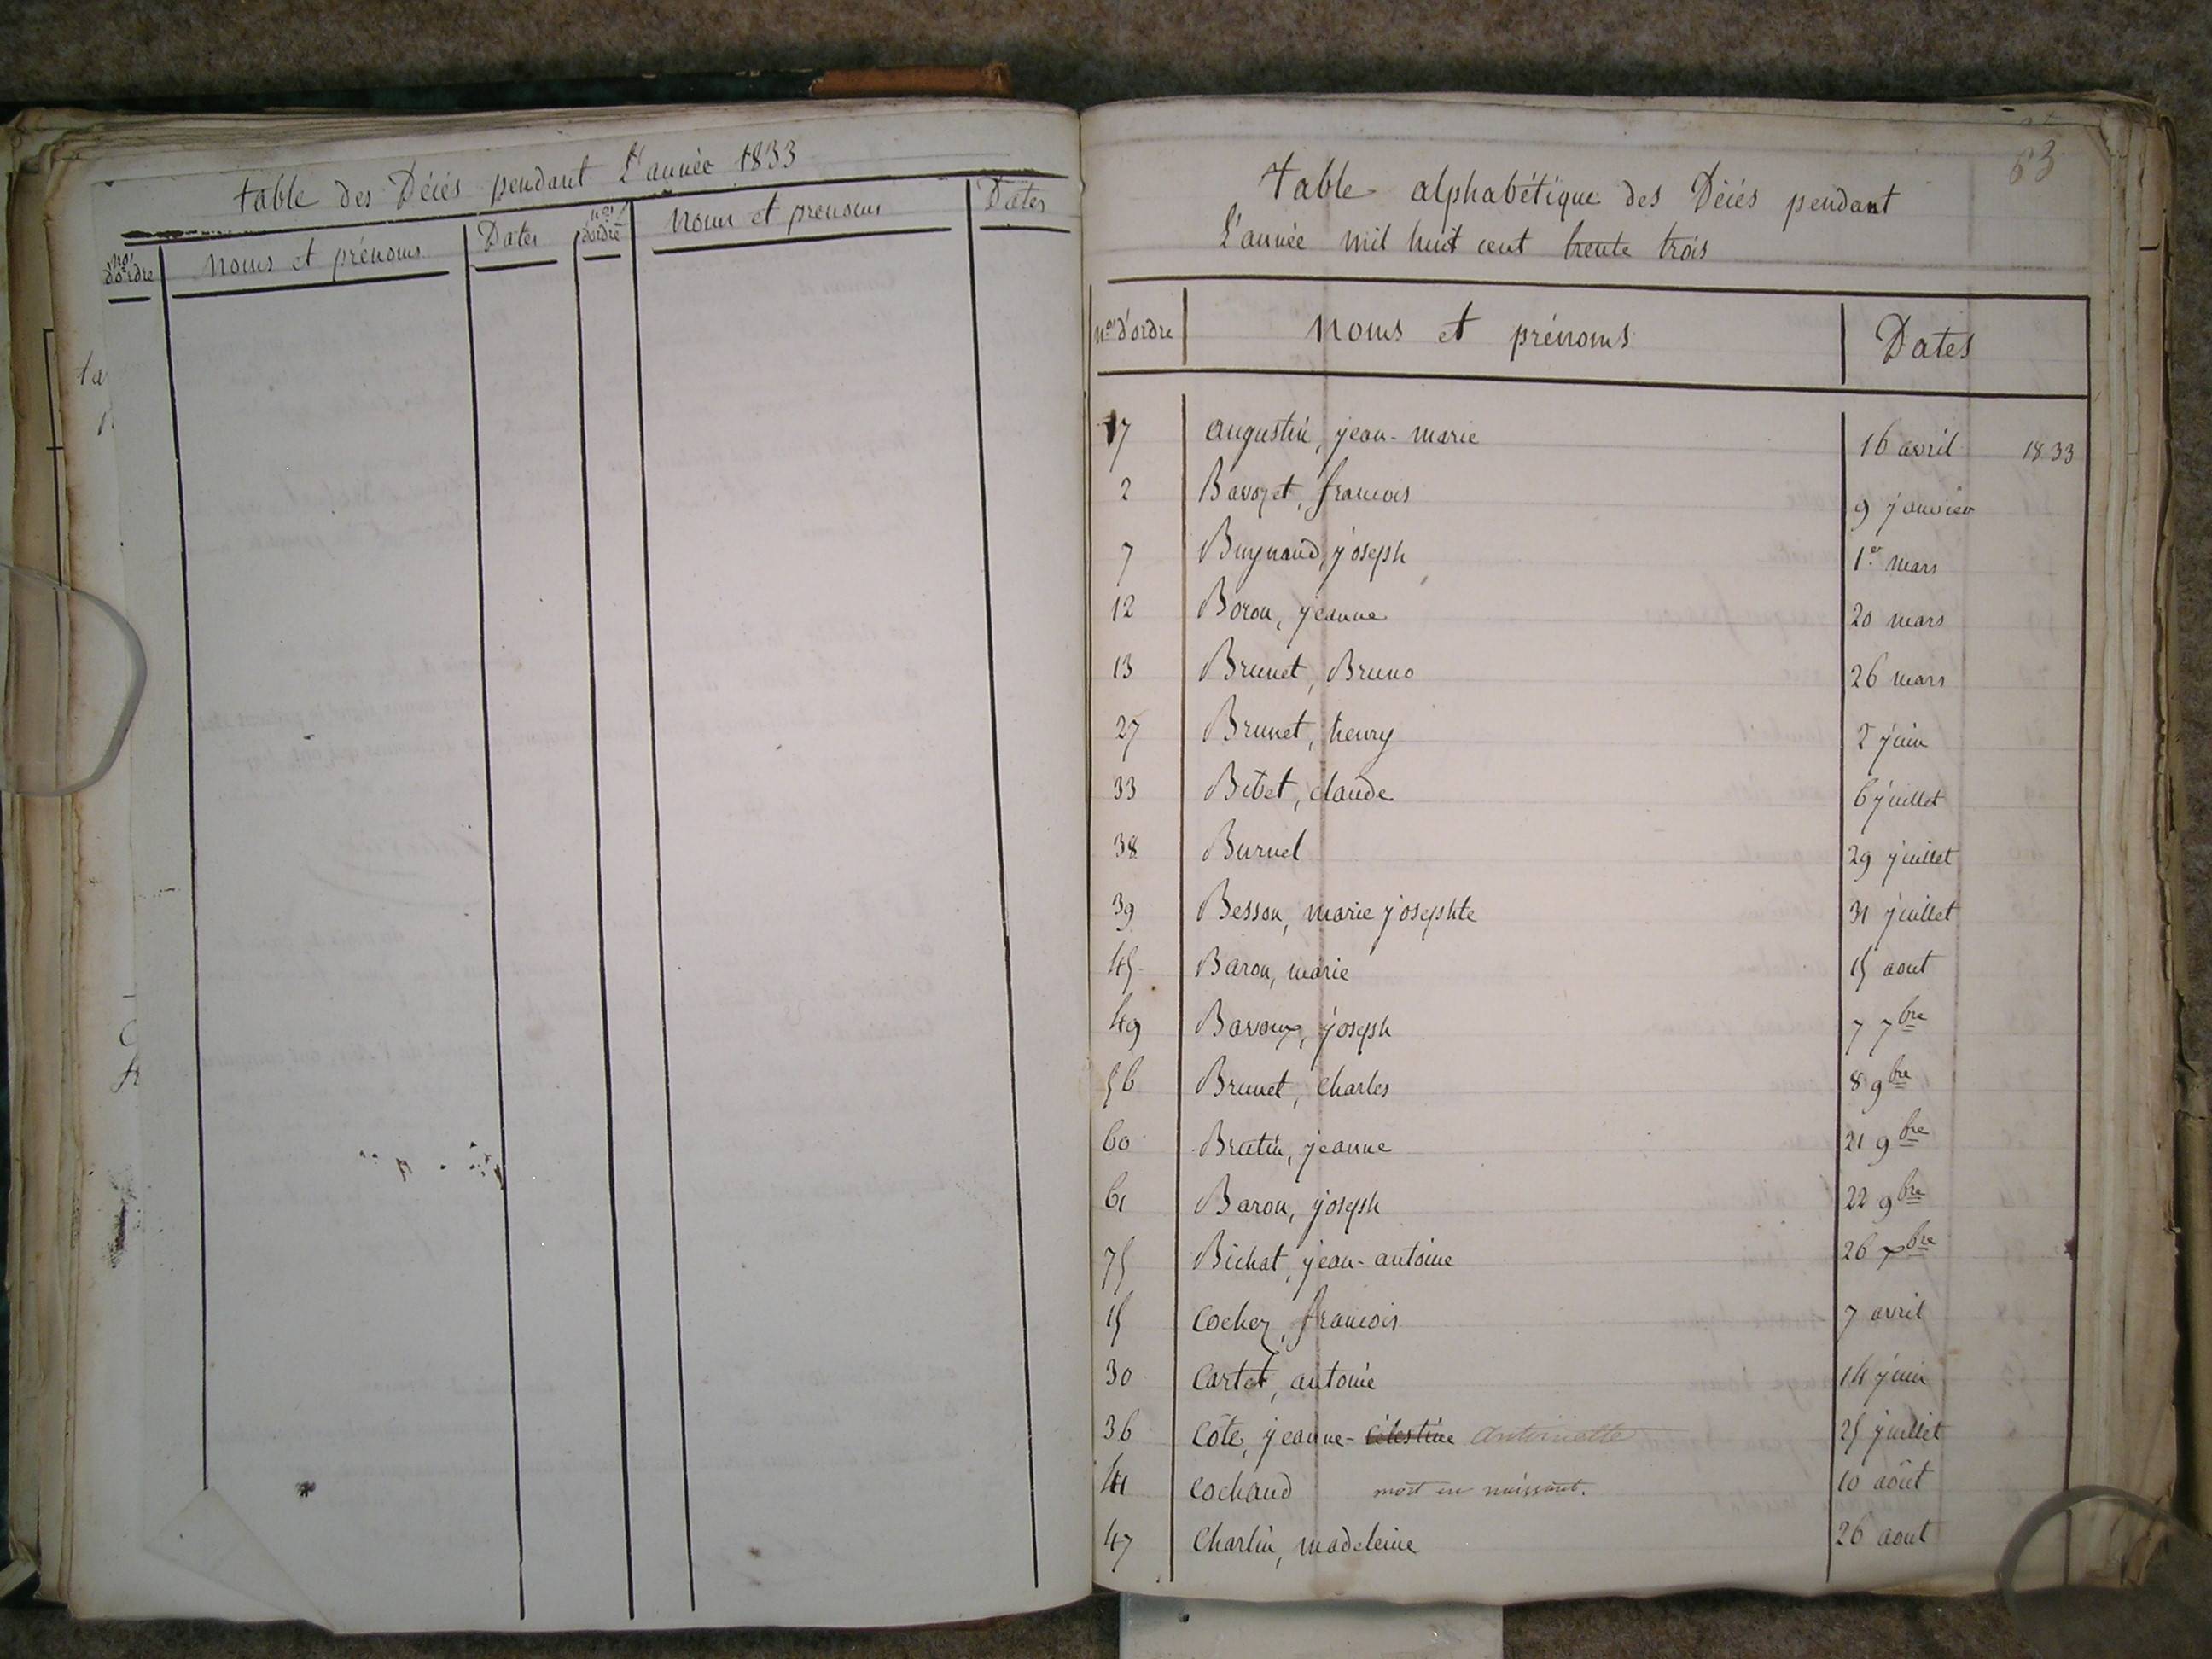 table des Décés pendant L'année 1833
nos d'ordre noms et prénoms Dates nos d'ordre noms et prenoms Dates
63
table alphabétique des Décés pendant
L'année mil huit cent trente trois
nos d'ordre noms et prénoms Dates
17 augustin, jean-marie 16 avril 1833
2 Bavozet, francois 9 janvier
7 Buynaud, joseph 1er mars
12 Boron, jeanne 20 mars
13 Brunet, Bruno 26 mars
27 Brunet, henry 2 juin
33 Bibet, claude 6 juillet
38 Burnel 29 juillet
39 Besson, marie josephte 31 juillet
45 Baron, marie 15 aout
49 Bavoux, joseph 7 7bre
56 Brunet, charles 8 9bre
60 Brutin, jeanne 21 9bre
61 Baron, joseph 22 9bre
75 Bichat, jean-antoine 26 xbre
15 Cochez, francois 7 avril
30 Cartet, antoine 14 juin
36 Côte, jeanne-célestine Antoinette 25 juillet
41 Cochaud mort en naissant. 10 août
47 Charlin, madeleine 26 aout